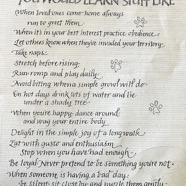 YOU WOULD LEARN STUFF LIKE
When loved ones come home always
run to greet them
When it's in your best interest practice obedience
Let others know when they've invaded your territory
Take naps
Stretch before rising
Run romp and play daily
Avoid biting when a simple growl will do
On hot days drink lots of water and lie
under a shady tree
When you're happy dance around
and wag your entire body
Delight in the simple joy of a long walk
Eat with gusto and enthusiasm
Stop when you have had enough
Be loyal Never pretend to be something you're not
When someone is having a bad day
be silent sit close by and nuzzle them gently